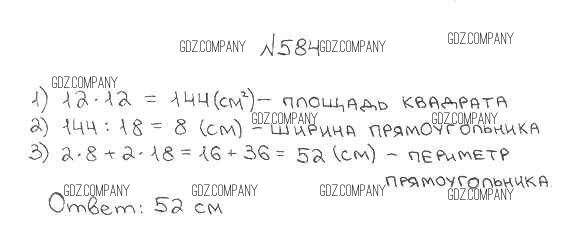 GDZ.COMPANY №584 GDZ.COMPANY GDZ.COMPANY
GDZ.COMPANY
1) 12·12 = 144 (см²) – площадь квадрата
GDZ.COMPANY GDZ.COMPANY
2) 144 : 18 = 8 (см) – ширина прямоугольника
3) 2·8 + 2·18 = 16 + 36 = 52 (см) – периметр
прямоугольника
GDZ.COMPANY GDZ.COMPANY GDZ.COMPANY GDZ.COMPANY
Ответ: 52 см